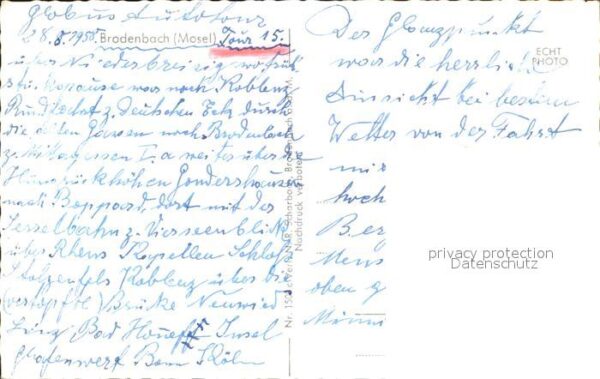 Globus Autotour
28.8.1958. Brodenbach (Mosel) Tour 15.
über Niederbreisig
nach Koblenz
Rundfahrt z. Deutschen Eck durch
die alten Gassen nach Brodenbach
z. Mittagessen I.a weiter über
Hunsrückhöhen Gondershausen
nach Boppard, dort mit der
Sesselbahn z. Vierseenblick
über Rhens Kapellen Schloß
Stolzenfels Koblenz über die
(verstopfte) Brücke Neuwied
Linz, Bad Honeff Insel
Grafenwerth Bonn Köln
Nachdruck verboten
Der Glanzpunkt
war die herrliche
Aussicht bei bestem
Wetter von der Fahrt
mit
hoch
Berg
Mens
oben g
Minu
ECHT
PHOTO
privacy protection
Datenschutz